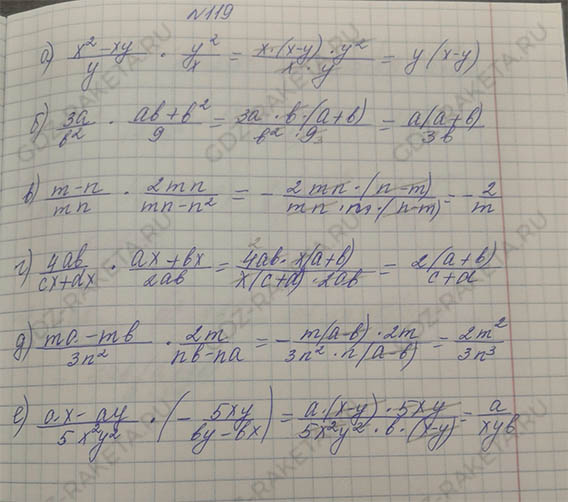 №119
а) (x² - xy)/y · y²/x = (x · (x-y) · y²)/(x · y) = y(x-y)
б) 3a/b² · (ab + b²)/9 = (3a · b · (a+b))/(b² · 9) = a(a+b)/3b
в) (m-n)/mn · 2mn/(mn-n²) = - (2mn · (n-m))/(mn · m · (n-m)) = - 2/m
г) 4ab/(cx+dx) · (ax+bx)/2ab = (4ab · x(a+b))/(x(c+d) · 2ab) = 2(a+b)/(c+d)
д) (ma - mb)/3n² · 2m/(nb-na) = - (m(a-b) · 2m)/(3n² · n(a-b)) = 2m²/3n³
е) (ax - ay)/5x²y² · (- 5xy/(by-bx)) = (a · (x-y) · 5xy)/(5x²y² · b · (x-y)) = a/xyb
GDZ-RAKETA.RU